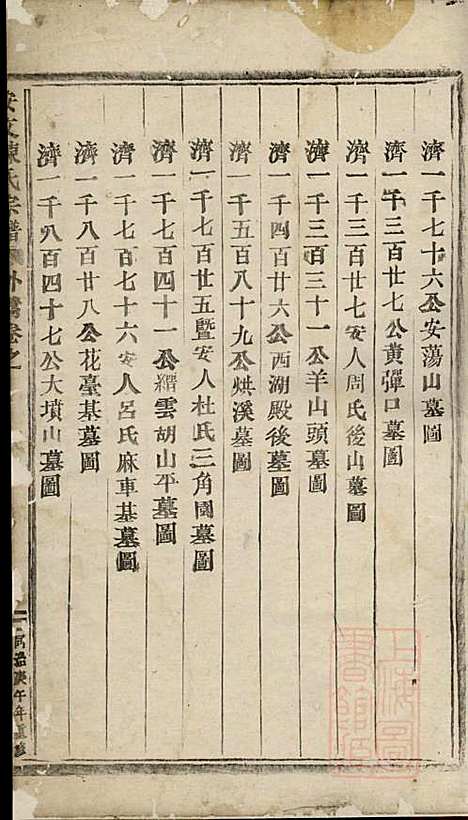 濟一千七十六公安蕩山墓圖
濟一千三百廿七公黃彈口墓圖
濟一千三百廿七安人周氏後山墓圖
濟一千三百三十一公羊山頭墓圖
濟一千四百廿六公西湖殿後墓圖
濟一千五百八十九公烘溪墓圖
濟一千七百廿五暨安人杜氏三角園墓圖
濟一千七百四十一公縉雲胡山平墓圖
濟一千七百七十六安人呂氏麻車基墓圖
濟一千八百廿八公花臺基墓圖
濟一千八百四十七公大墳山墓圖
安文陳氏宗譜 外 卷之一
同治庚午年重修
上海圖書館藏